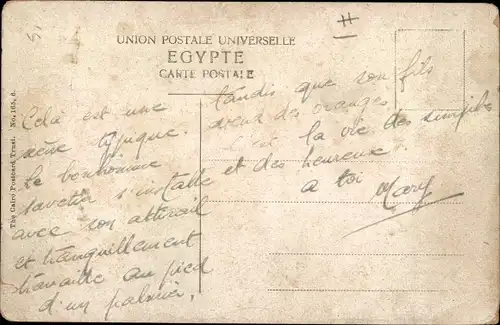 51
#
UNION POSTALE UNIVERSELLE
EGYPTE
CARTE POSTALE
The Cairo Postcard Trust. No. 165. 6.
Celà est une
scène typique.
Le bonhomme
savetier s'installe
avec son attirail
et tranquillement
travaille au pied
d'un palmier,
tandis que son fils
vend des oranges.
C'est la vie des simples
et des heureux.
à toi Mary